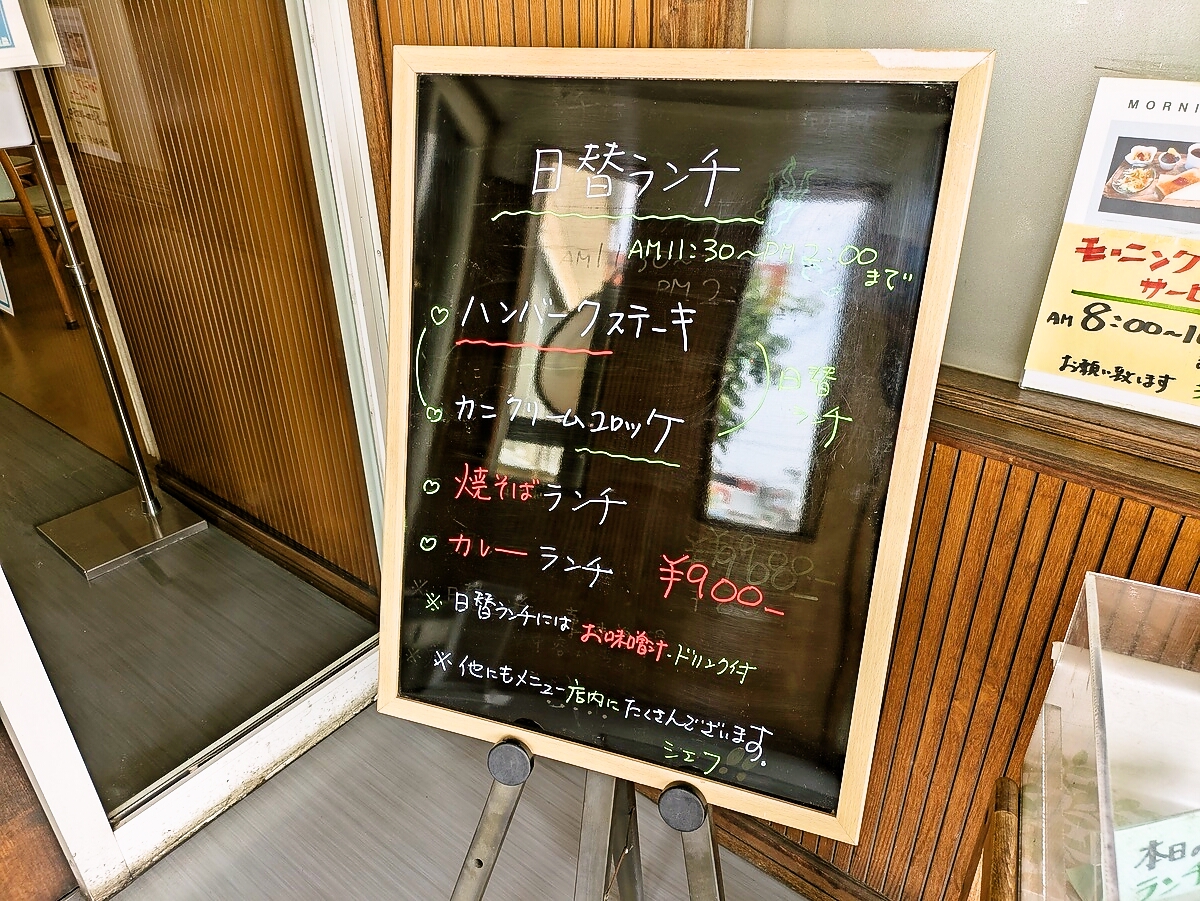 日替ランチ
AM11:30〜PM2:00
まで
♡ ハンバークステーキ
♡ カニクリームコロッケ
日替
ンチ
♡ 焼そばランチ
♡ カレーランチ ¥900-
※ 日替ランチには お味噌汁・ドリンク付
※ 他にもメニュー店内にたくさんございます。
シェフ
MORNI
モーニング
サー
AM 8:00〜1
お願い致します
本日の
ランチ